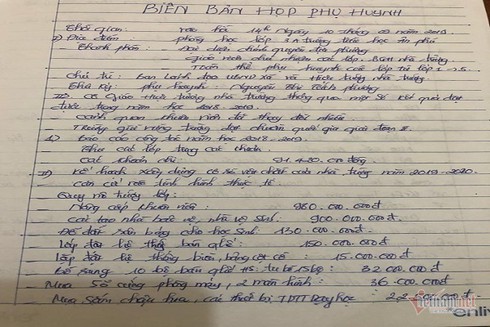 BIÊN BẢN HỌP PHỤ HUYNH
Thời gian: vào hồi 14h ngày 20 tháng 02 năm 2019
Địa điểm: phòng học lớp 1A trường tiểu học
Thành phần: Đại diện chính quyền địa phương
Giáo viên chủ nhiệm các lớp. BGH nhà trường
Toàn thể phụ huynh các lớp từ lớp 1 → 5.
Chủ trì: Ban lãnh đạo UBND xã và Hiệu trưởng nhà trường.
Thư ký: phụ huynh: Nguyễn Thị Phương
Cô Giáo Hiệu trưởng nhà trường thông qua một số kết quả đạt
được trong năm học 2018-2019.
Cảnh quan khuôn viên đã thay đổi nhiều
Trường giữ vững trường đạt chuẩn quốc gia giai đoạn II.
Báo cáo công tác năm học 2018-2019.
Thu các lớp trong các khoản.
Các khoản chi: 91.480.000 đồng
Kế hoạch xây dựng cơ sở vật chất của nhà trường năm 2019-2020.
Căn cứ vào tình hình thực tế.
Quy mô trường lớp:
Nâng cấp khuôn viên: 980.000.000đ
Cải tạo nhà bảo vệ, nhà vệ sinh: 900.000.000đ
Để đất sân bóng cho học sinh: 130.000.000đ
Lắp đặt hệ thống bàn ghế: 150.000.000đ
Lắp đặt hệ thống biển, bảng cột cờ: 15.000.000đ
Bổ sung 10 bộ bàn ghế HS 32.000.000đ
Mua số cứng phòng máy, 2 màn hình: 36.000.000đ
Mua sắm chậu hoa, các thiết bị, TDTT Dạy học
vietnamnet